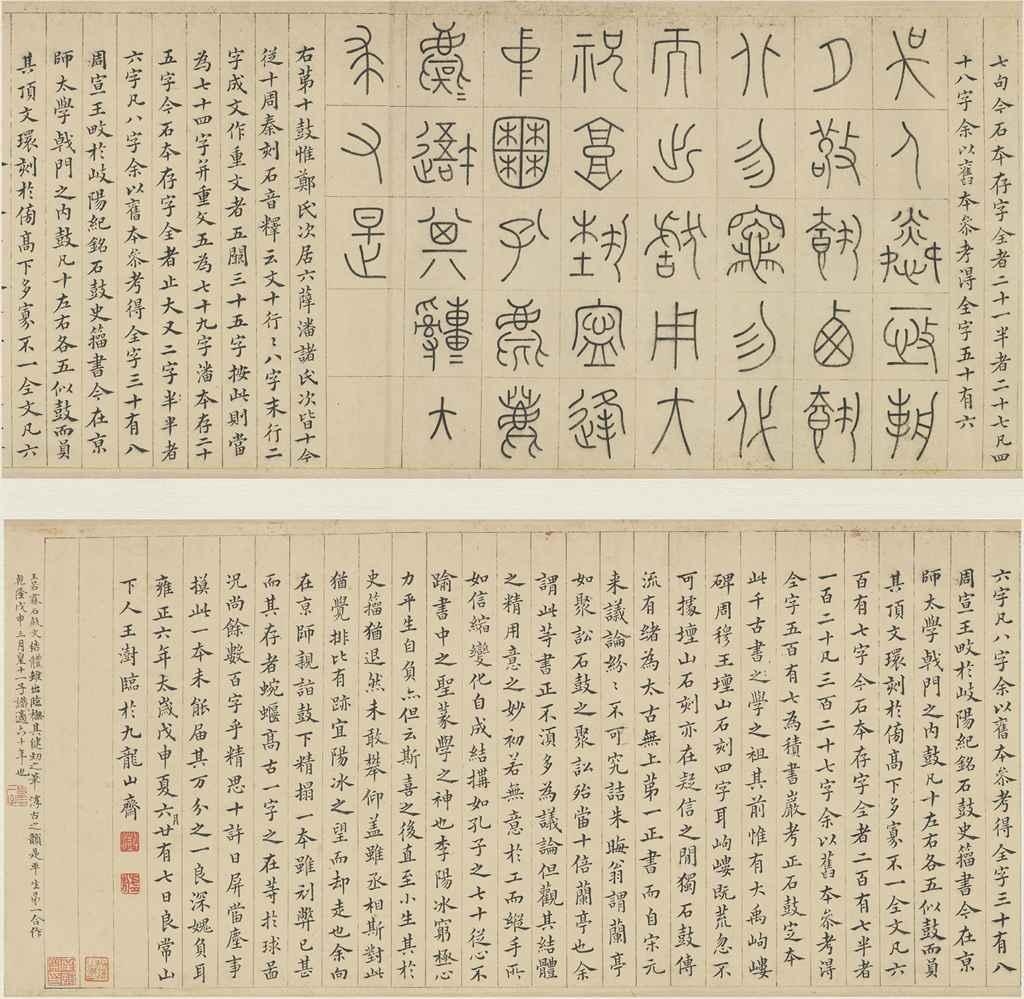 七句今石本存字全者二十一半者二十七凡四
十八字余以舊本叅考得全字五十有六
吳人亟朝
夕敬鹵
北勿竈勿代
而出獻用大
祝寍逢
中囿孔鹿
其大
求又是
右苐十鼓惟鄭氏次居六薛潘諸氏次皆十今
從十周秦刻石音釋云文十行ミ八字末行二
字成文作重文者五闕三十五字按此則當
為七十四字并重文五為七十九字潘本存二十
五字今石本存字全者止大又二字半半者
六字凡八字余以舊本叅考得全字三十有八
周宣王畋於岐陽紀銘石鼓史籀書今在京
師太學戟門之內鼓凡十左右各五似鼓而員
其頂文環刻於傍高下多寡不一全文凡六
六字凡八字余以舊本叅考得全字三十有八
周宣王畋於岐陽紀銘石鼓史籀書今在京
師太學戟門之內鼓凡十左右各五似鼓而員
其頂文環刻於傍高下多寡不一全文凡六
百有七字今石本存字全者二百有七半者
一百二十凡三百二十七字余以舊本叅考得
全字五百有七為積書巖考正石鼓定本
此千古書之學之祖其前惟有大禹岣嶁
碑周穆王壇山石刻四字耳岣嶁既荒忽不
可據壇山石刻亦在疑信之間獨石鼓傳
流有緒為太古無上苐一正書而自宋元
来議論紛ミ不可究詰朱晦翁謂蘭亭
如聚訟石鼓之聚訟殆當十倍蘭亭也余
謂此等書正不湏多為議論但觀其結體
之精用意之妙初若無意於工而縱手所
如信縮變化自成結搆如孔子之七十從心不
踰書中之聖篆學之神也李陽冰窮極心
力平生自負点但云斯喜之後直至小生其於
史籀猶退然未敢攀仰盖雖丞相斯對此
猶覺排比有跡宜陽冰之望而却走也余向
在京師親詣鼓下精搨一本雖刓弊已甚
而其存者蜿蜒高古一字之在等於球啚
況尚餘數百字乎精思十許日屏當塵事
摸此一本未能届其万分之一良深媿負耳
雍正六年太歲戊申夏六月廿有七日良常山
下人王澍臨於九龍山齋
王若霖石鼓文結體雖出臨橅其健劲之筆渟古之韻是平生第一合作
乾隆戊申三月皇十一子識適六十年也